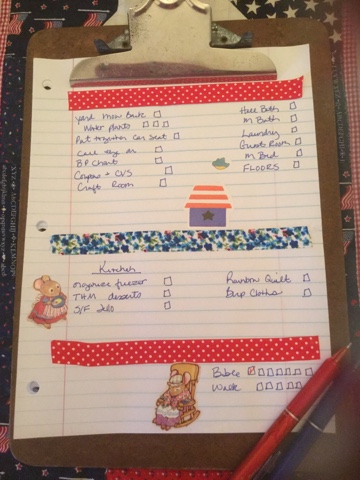 Yard Mow Back
Water plants
Put together Car Seat
Call
B.P. Chart
Coupons + CVS
Craft Room
Hall Bath
M Bath
Laundry
Guest Room
M Bed
FLOORS
Kitchen
organize freezer
THM desserts
S/F Jello
Rainbow Quilt
Burp Cloths
Bible
Walk